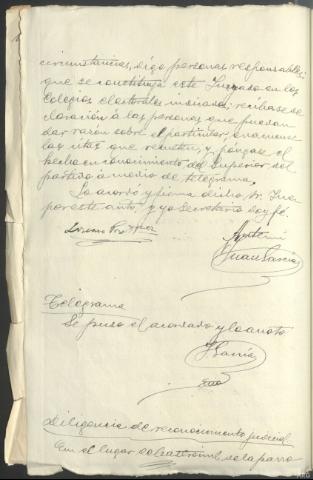 circunstancias, digo personas responsables;
que se constituya este Juzgado en los
Colegios electorales indicados; recíbase de
claración á las personas que puedan
dar razón sobre el particular, evacuense
las citas que resulten, y póngase el
hecho en conocimiento del Superior del
partido á medio de telegrama.
Lo acordó y firma dicho Sr. Juez
por este auto, y yo Secretario doy fé.
Antemi
Juan García
Telegrama
Se puso el acordado y lo anoto
García
Diligencia de reconocimiento judicial
En el lugar de la parro